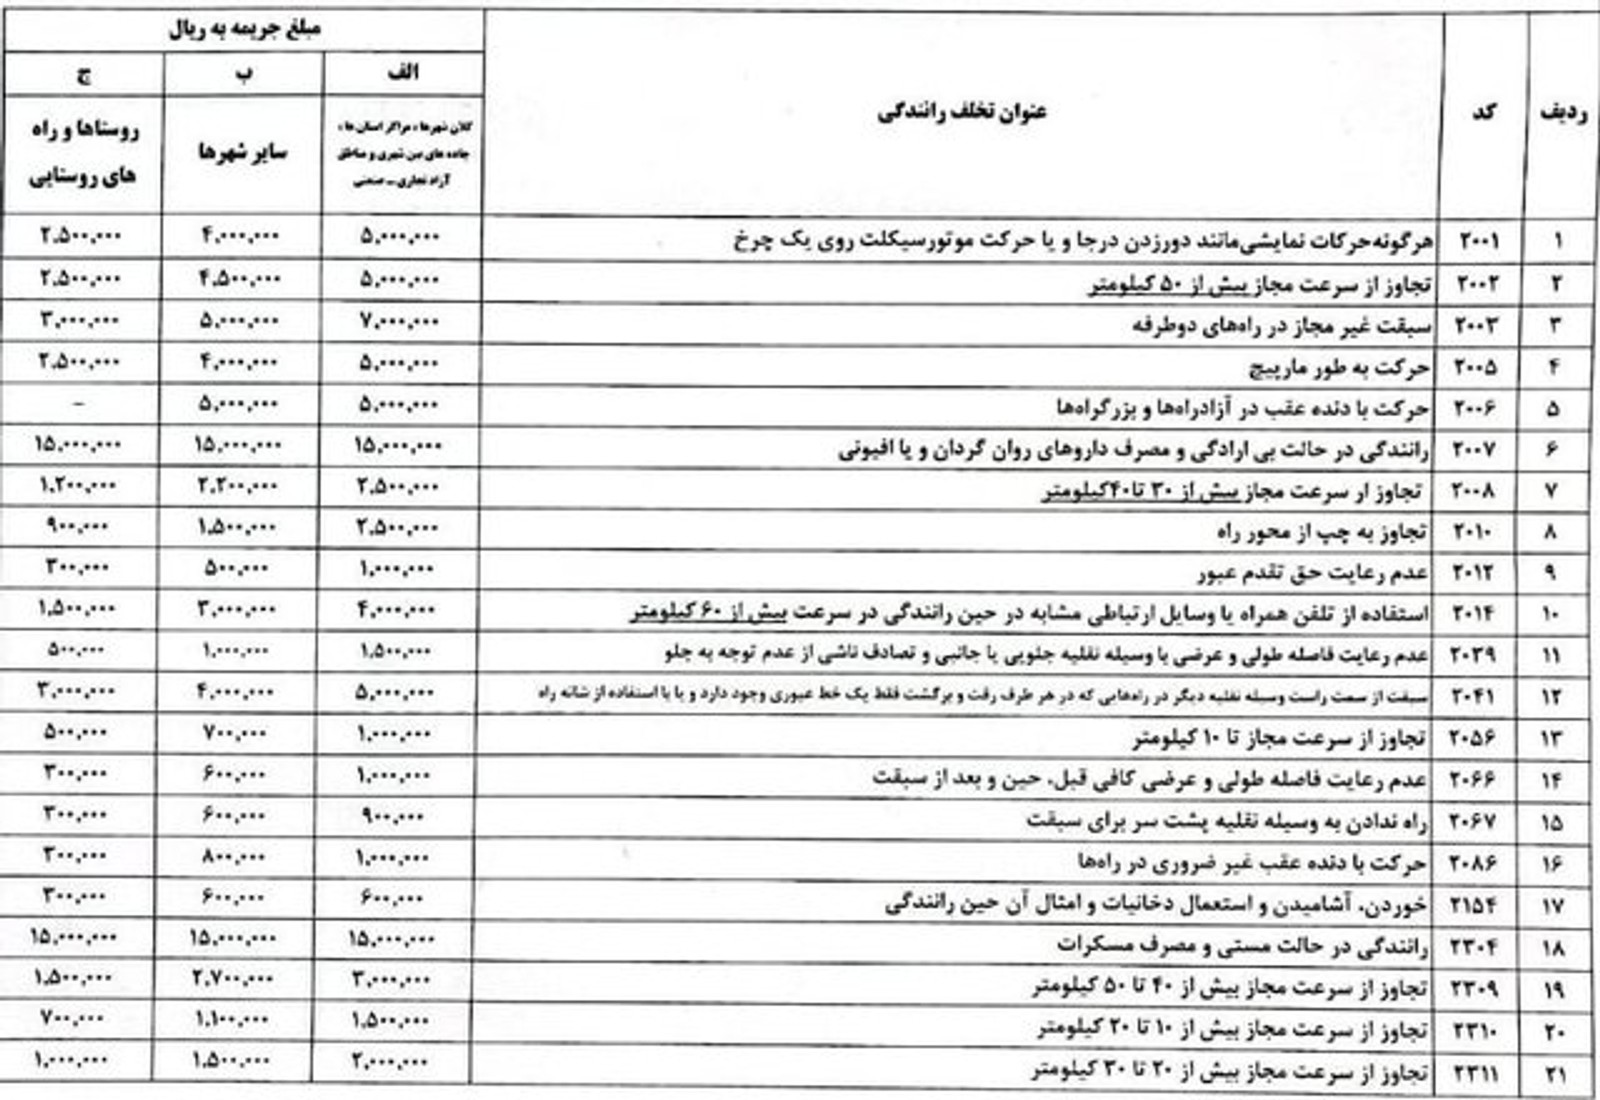 ردیف کد عنوان تخلف رانندگی مبلغ جریمه به ریال
الف ب ج
کلان شهرها ، مراکز استان ها ، جاده های بین شهری و مناطق آزاد تجاری ـ صنعتی
سایر شهرها
روستاها و راه های روستایی
۱ ۲۰۰۱ هرگونه‌حرکات نمایشی‌مانند دورزدن درجا و یا حرکت موتورسیکلت روی یک چرخ ۵,۰۰۰,۰۰۰ ۴,۰۰۰,۰۰۰ ۲,۵۰۰,۰۰۰
۲ ۲۰۰۲ تجاوز از سرعت مجاز بیش از ۵۰ کیلومتر ۵,۰۰۰,۰۰۰ ۴,۵۰۰,۰۰۰ ۲,۵۰۰,۰۰۰
۳ ۲۰۰۳ سبقت غیر مجاز در راه‌های دوطرفه ۷,۰۰۰,۰۰۰ ۵,۰۰۰,۰۰۰ ۳,۰۰۰,۰۰۰
۴ ۲۰۰۵ حرکت به طور مارپیچ ۵,۰۰۰,۰۰۰ ۴,۰۰۰,۰۰۰ ۲,۵۰۰,۰۰۰
۵ ۲۰۰۶ حرکت با دنده عقب در آزادراه‌ها و بزرگراه‌ها ۵,۰۰۰,۰۰۰ ۵,۰۰۰,۰۰۰ -
۶ ۲۰۰۷ رانندگی در حالت بی ارادگی و مصرف داروهای روان گردان و یا افیونی ۱۵,۰۰۰,۰۰۰ ۱۵,۰۰۰,۰۰۰ ۱۵,۰۰۰,۰۰۰
۷ ۲۰۰۸ تجاوز ار سرعت مجاز بیش از ۳۰ تا۴۰کیلومتر ۲,۵۰۰,۰۰۰ ۲,۲۰۰,۰۰۰ ۱,۲۰۰,۰۰۰
۸ ۲۰۱۰ تجاوز به چپ از محور راه ۲,۵۰۰,۰۰۰ ۱,۵۰۰,۰۰۰ ۹۰۰,۰۰۰
۹ ۲۰۱۲ عدم رعایت حق تقدم عبور ۱,۰۰۰,۰۰۰ ۵۰۰,۰۰۰ ۳۰۰,۰۰۰
۱۰ ۲۰۱۴ استفاده از تلفن همراه یا وسایل ارتباطی مشابه در حین رانندگی در سرعت بیش از ۶۰ کیلومتر ۴,۰۰۰,۰۰۰ ۳,۰۰۰,۰۰۰ ۱,۵۰۰,۰۰۰
۱۱ ۲۰۳۹ عدم رعایت فاصله طولی و عرضی با وسیله نقلیه جلویی یا جانبی و تصادف ناشی از عدم توجه به جلو ۱,۵۰۰,۰۰۰ ۱,۰۰۰,۰۰۰ ۵۰۰,۰۰۰
۱۲ ۲۰۴۱ سبقت از سمت راست وسیله نقلیه دیگر در راه‌هایی که در هر طرف رفت و برگشت فقط یک خط عبوری وجود دارد و یا با استفاده از شانه راه ۵,۰۰۰,۰۰۰ ۴,۰۰۰,۰۰۰ ۳,۰۰۰,۰۰۰
۱۳ ۲۰۵۶ تجاوز از سرعت مجاز تا ۱۰ کیلومتر ۱,۰۰۰,۰۰۰ ۷۰۰,۰۰۰ ۵۰۰,۰۰۰
۱۴ ۲۰۶۶ عدم رعایت فاصله طولی و عرضی کافی قبل، حین و بعد از سبقت ۱,۰۰۰,۰۰۰ ۶۰۰,۰۰۰ ۳۰۰,۰۰۰
۱۵ ۲۰۶۷ راه ندادن به وسیله نقلیه پشت سر برای سبقت ۹۰۰,۰۰۰ ۶۰۰,۰۰۰ ۳۰۰,۰۰۰
۱۶ ۲۰۸۶ حرکت با دنده عقب غیر ضروری در راه‌ها ۱,۰۰۰,۰۰۰ ۸۰۰,۰۰۰ ۳۰۰,۰۰۰
۱۷ ۲۱۵۴ خوردن، آشامیدن و استعمال دخانیات و امثال آن حین رانندگی ۶۰۰,۰۰۰ ۶۰۰,۰۰۰ ۳۰۰,۰۰۰
۱۸ ۲۳۰۴ رانندگی در حالت مستی و مصرف مسکرات ۱۵,۰۰۰,۰۰۰ ۱۵,۰۰۰,۰۰۰ ۱۵,۰۰۰,۰۰۰
۱۹ ۲۳۰۹ تجاوز از سرعت مجاز بیش از ۴۰ تا ۵۰ کیلومتر ۳,۰۰۰,۰۰۰ ۲,۷۰۰,۰۰۰ ۱,۵۰۰,۰۰۰
۲۰ ۲۳۱۰ تجاوز از سرعت مجاز بیش از ۱۰ تا ۲۰ کیلومتر ۱,۵۰۰,۰۰۰ ۱,۱۰۰,۰۰۰ ۷۰۰,۰۰۰
۲۱ ۲۳۱۱ تجاوز از سرعت مجاز بیش از ۲۰ تا ۳۰ کیلومتر ۲,۰۰۰,۰۰۰ ۱,۵۰۰,۰۰۰ ۱,۰۰۰,۰۰۰